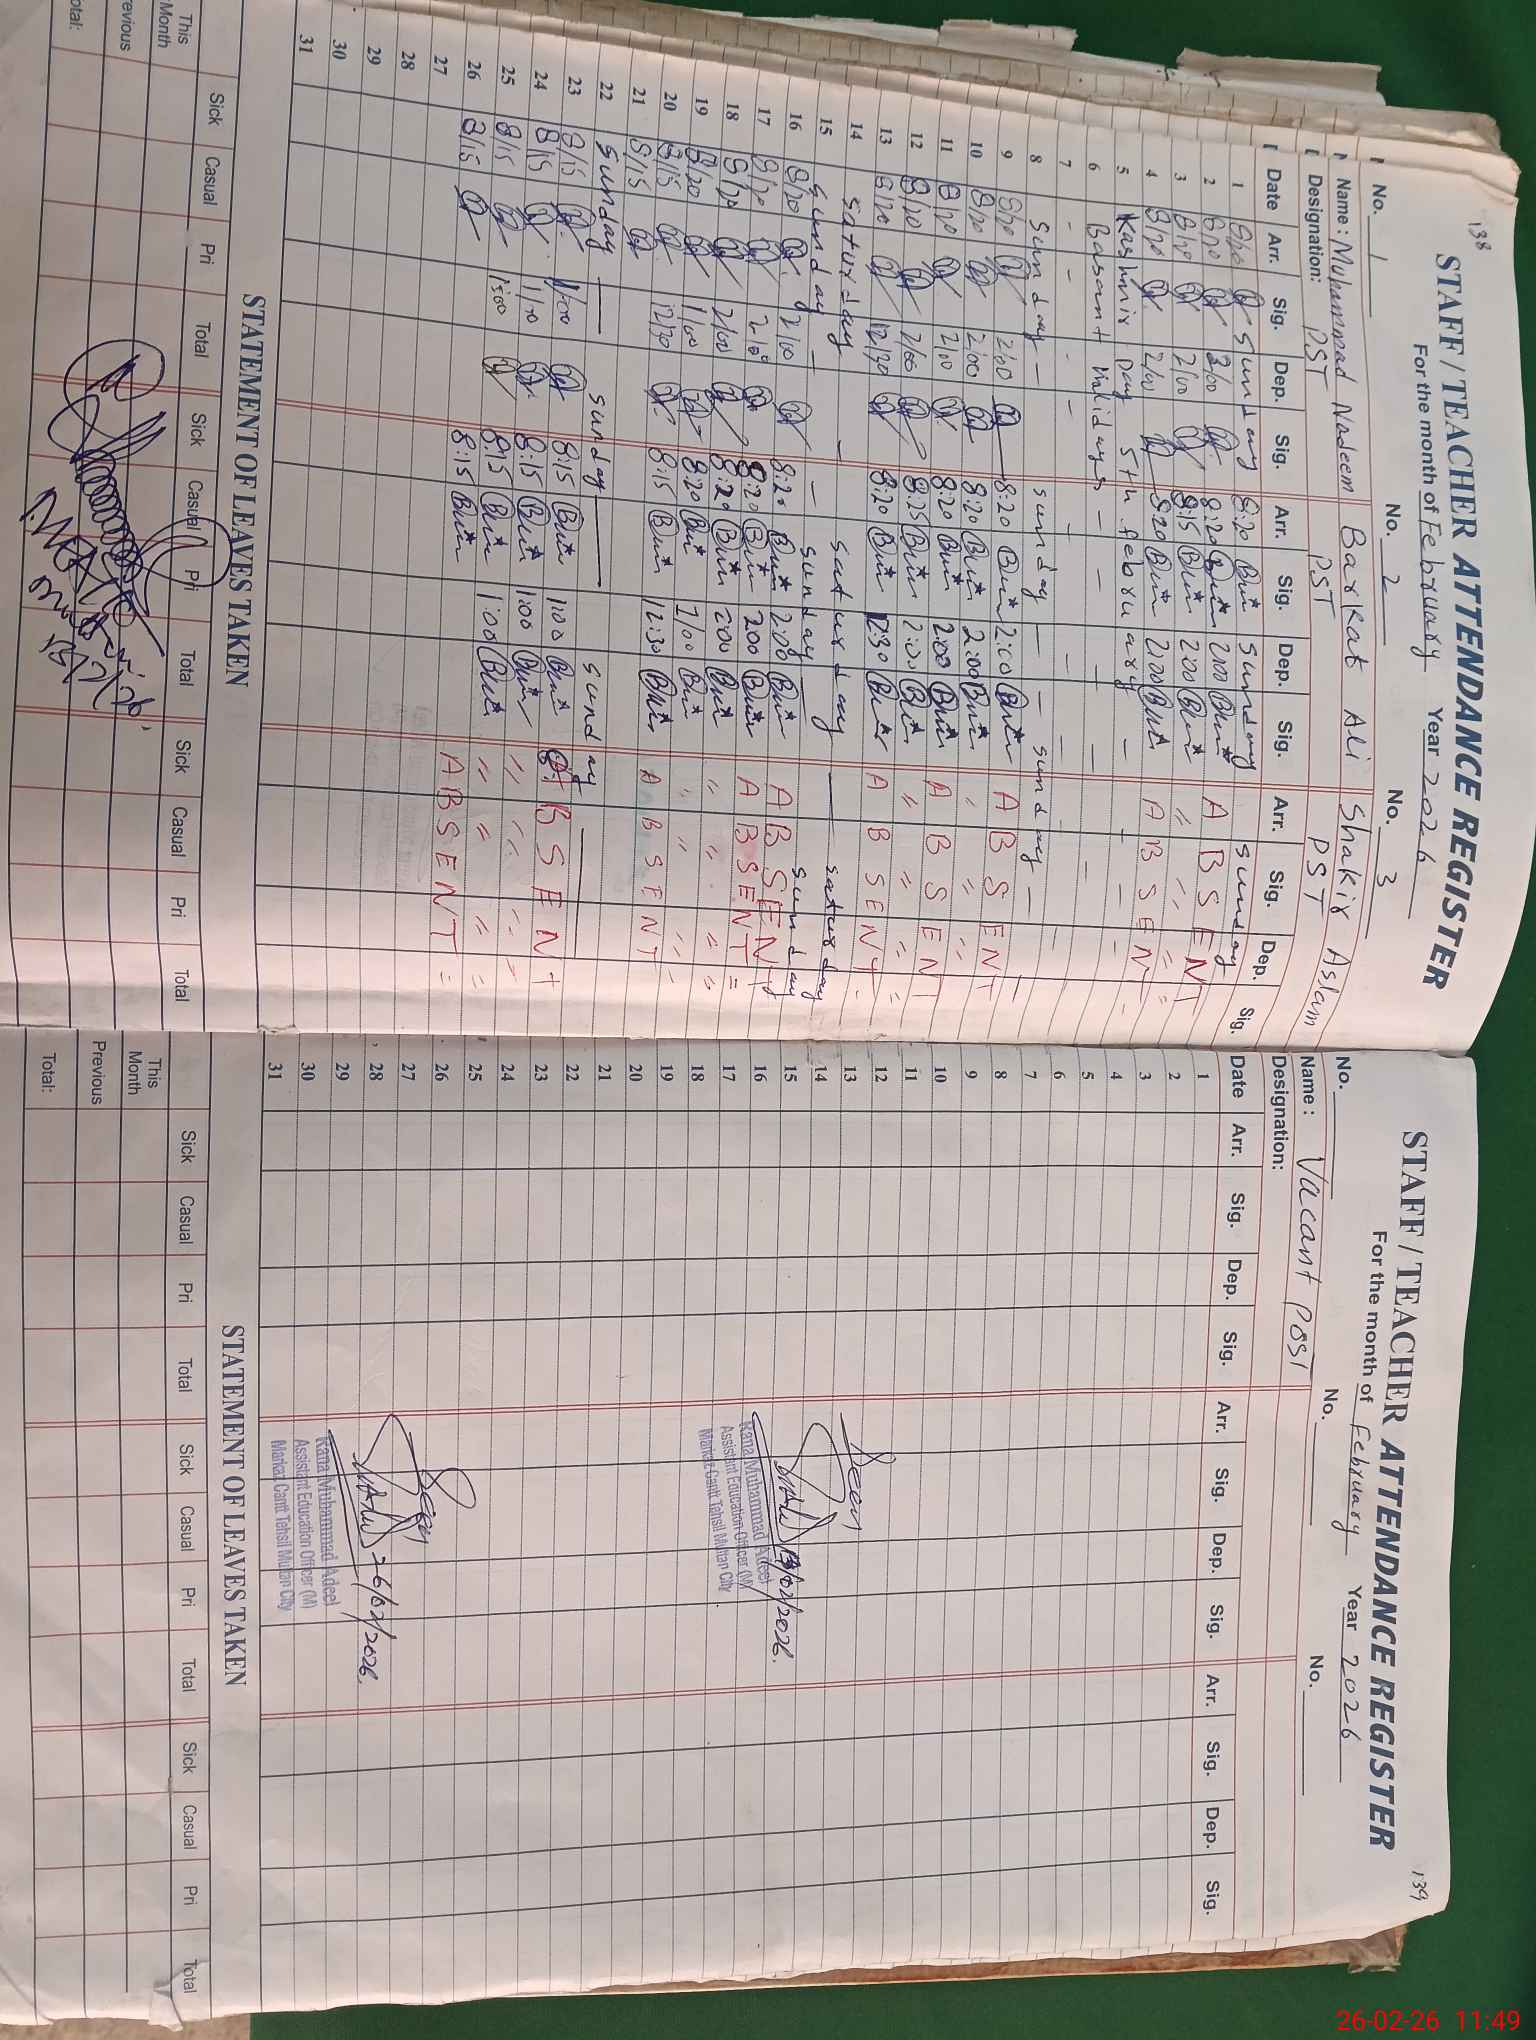 138
STAFF / TEACHER ATTENDANCE REGISTER
For the month of February Year 2026
No. 1 No. 2 No. 3
Name : Muhammad Nadeem Barkat Ali Shakir Aslam
Designation: PST PST PST
Date Arr. Sig. Dep. Sig. Arr. Sig. Dep. Sig. Arr. Sig. Dep. Sig.
1 Sunday Sunday Sunday
2 8/20 2/00 8:20 2:00 ABSENT
3 8/20 2/00 8:15 2:00 " " "
4 8/20 2/00 8:20 2:00 ABSENT
5 Kashmir Day 5th february - - -
6 Basant Holidays - - -
7 - - - -
8 Sunday - Sunday - - Sunday -
9 8/20 2:00 8:20 2:00 ABSENT
10 8/20 2:00 8:20 2:00 " " "
11 8/20 2:00 8:20 2:00 ABSENT
12 8/20 2/00 8:25 2:00 " " "
13 8/20 12/30 8:20 12:30 ABSENT
14 Saturday - Saturday - Saturday
15 Sunday - - Sunday - Sunday
16 8/20 2/00 8:20 2:00 ABSENT
17 8/20 2/00 8:20 2:00 ABSENT =
18 8/20 2/00 8:20 2:00 " " "
19 8/20 1/00 8:20 1/00 " " "
20 8/15 12/30 8:15 12:30 ABSENT
21 8/15
22 Sunday Sunday Sunday
23 8/15 1/00 8:15 1:00 ABSENT
24 8/15 1/00 8:15 1:00 " " "
25 8/15 1:00 8:15 1:00 " " " =
26 8/15 8:15 ABSENT =
27
28
29
30
31
STATEMENT OF LEAVES TAKEN
Sick Casual Pri Total Sick Casual Pri Total Sick Casual Pri Total
This Month
revious
otal:
139
STAFF / TEACHER ATTENDANCE REGISTER
For the month of February Year 2026
No. No. No.
Name : Vacant Post
Designation:
Date Arr. Sig. Dep. Sig. Arr. Sig. Dep. Sig. Arr. Sig. Dep. Sig.
1
2
3
4
5
6
7
8
9
10
11
12
13
14
15
16
17
18
19
20
21
22
23
24
25
26
27
28
29
30
31
Seen
13/02/2026.
Rana Muhammad Adeel
Assistant Education Officer (M)
Markaz Cantt Tehsil Multan City
Seen
26/02/2026.
Rana Muhammad Adeel
Assistant Education Officer (M)
Markaz Cantt Tehsil Multan City
STATEMENT OF LEAVES TAKEN
Sick Casual Pri Total Sick Casual Pri Total Sick Casual Pri Total
This Month
Previous
Total:
26-02-26 11:49